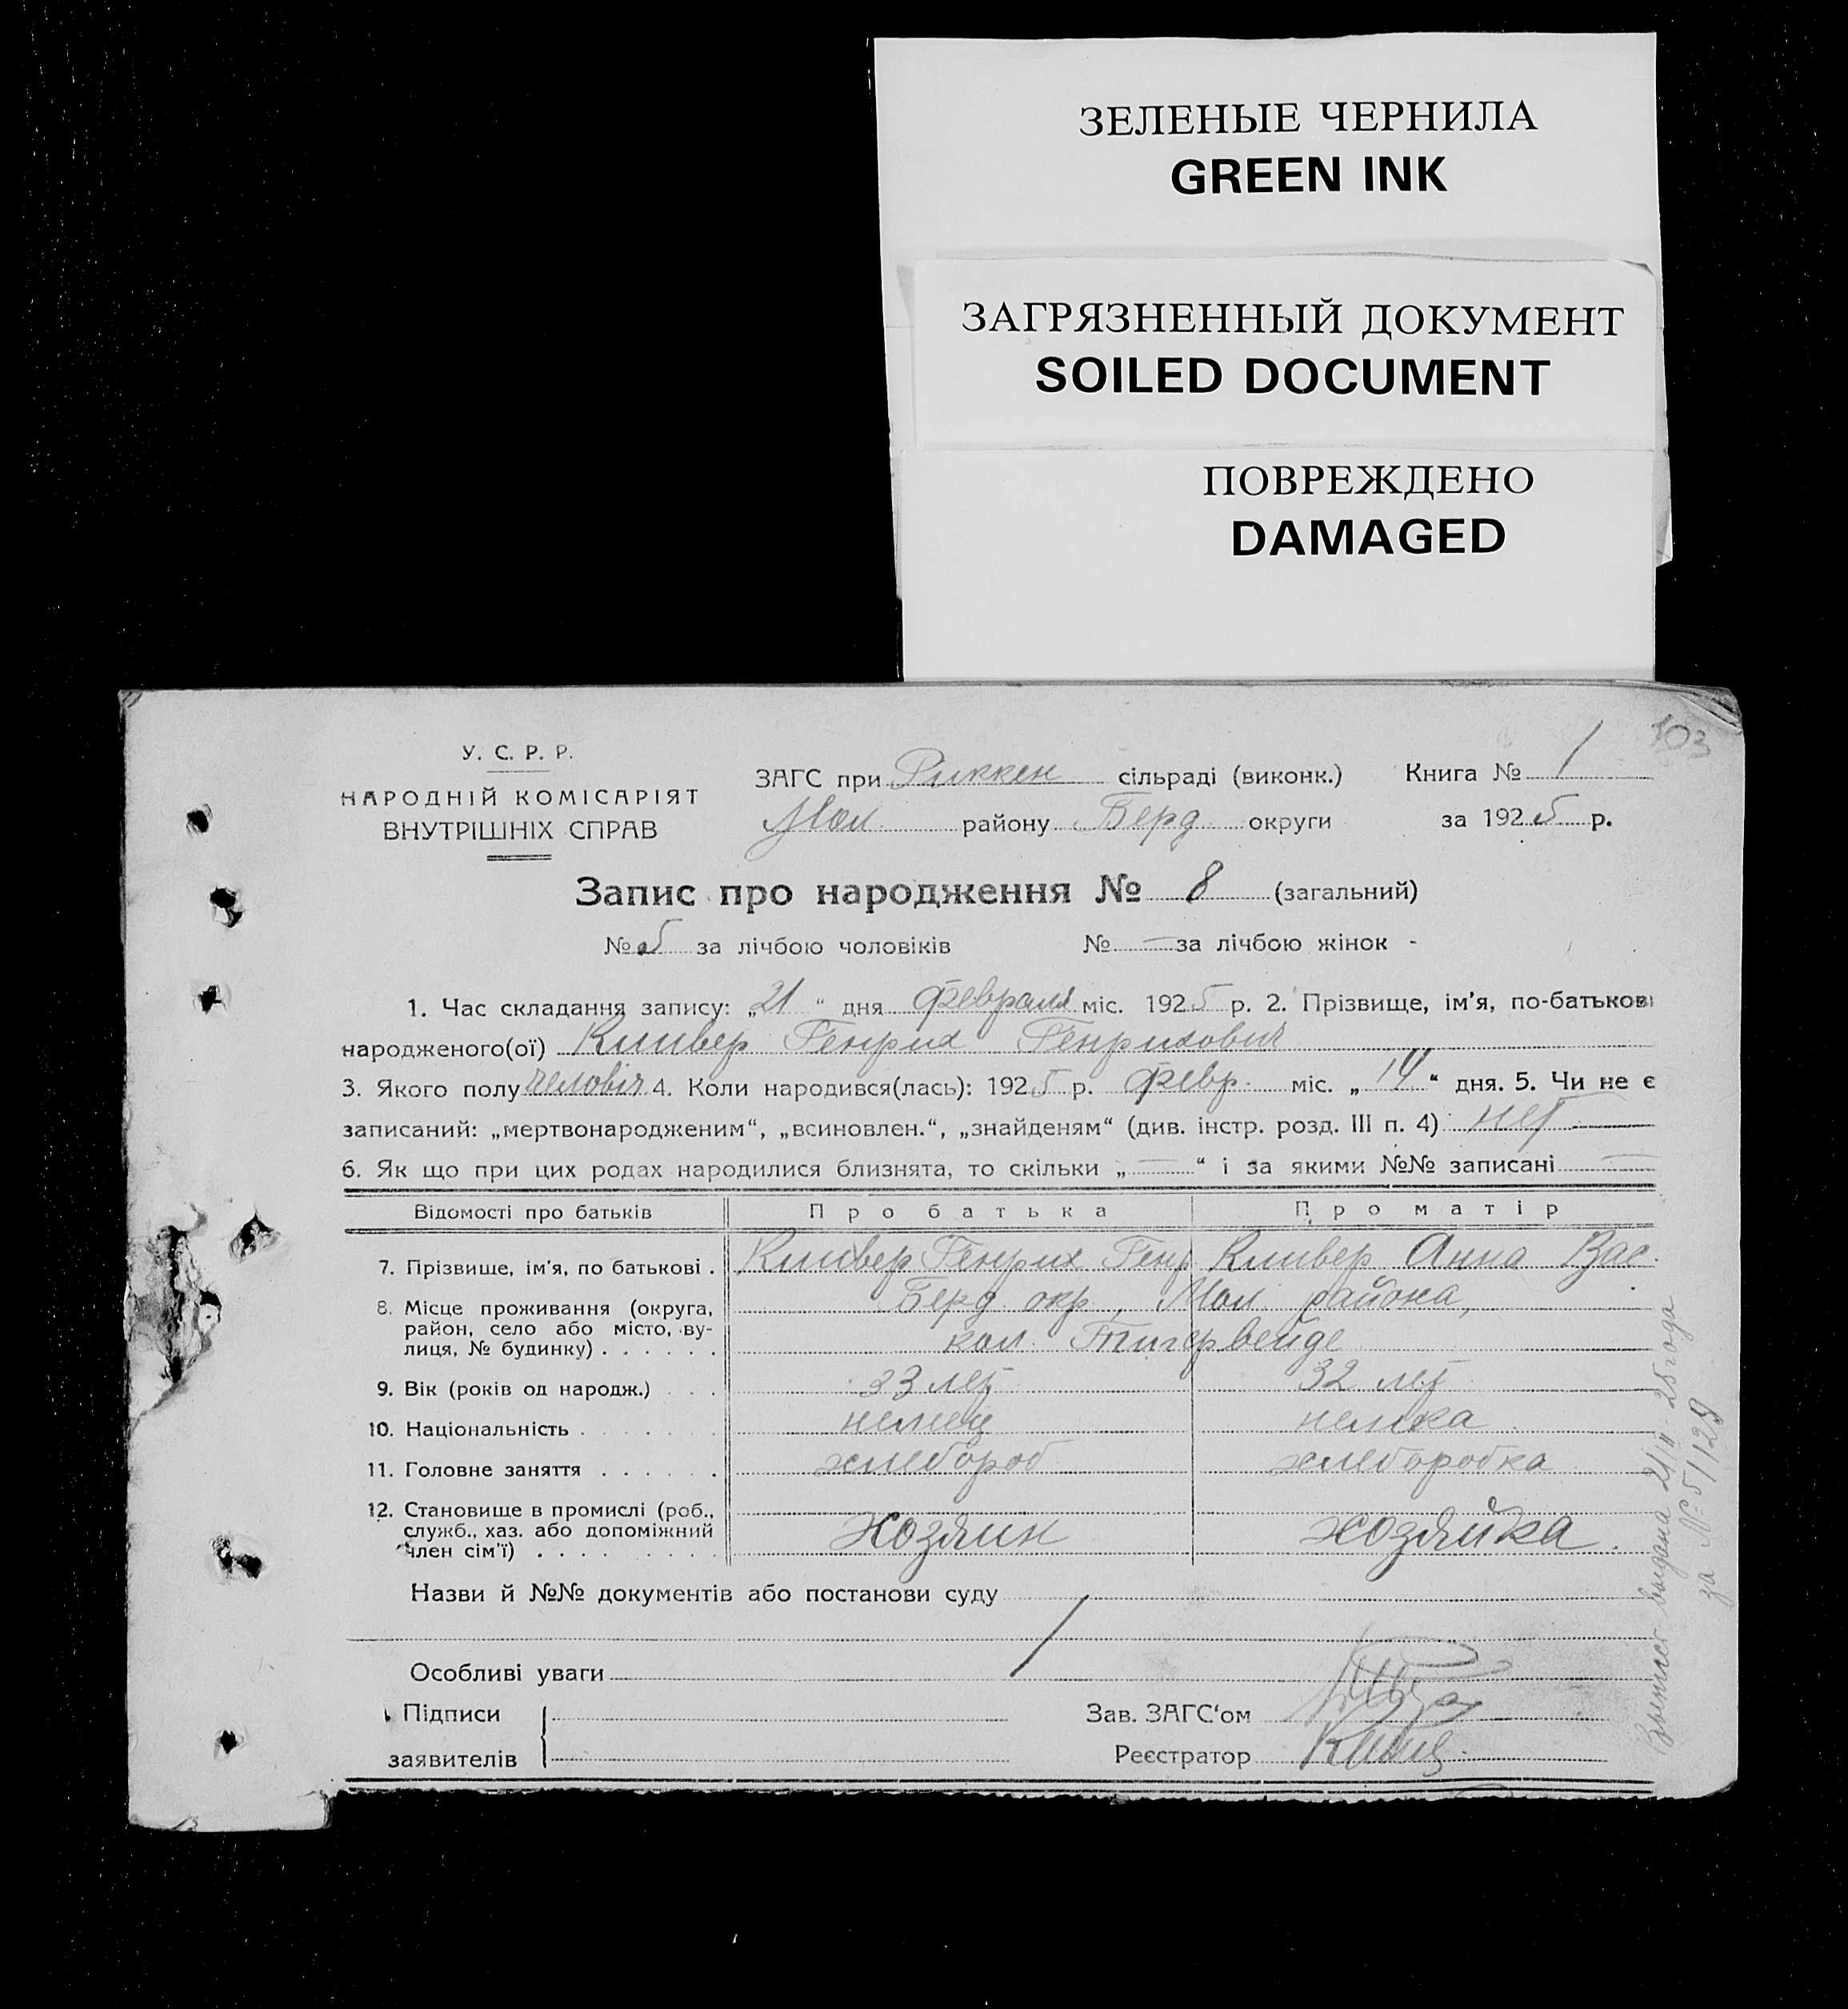 ЗЕЛЕНЫЕ ЧЕРНИЛА
GREEN INK
ЗАГРЯЗНЕННЫЙ ДОКУМЕНТ
SOILED DOCUMENT
ПОВРЕЖДЕНО
DAMAGED
103
У. С. Р. Р.
НАРОДНІЙ КОМІСАРІЯТ
ВНУТРІШНІХ СПРАВ
ЗАГС при Риккен сільраді (виконк.) Книга № 1
Мол району Берд округи за 1925 р.
Запис про народження № 8 (загальний)
№ 5 за лічбою чоловіків № — за лічбою жінок -
1. Час складання запису: „21“ дня февраля міс. 1925 р. 2. Прізвище, ім'я, по-батькові
народженого(ої) Кливер Генрих Генрихович
3. Якого полу человіч 4. Коли народився(лась): 1925 р. февр. міс. „14“ дня. 5. Чи не є
записаний: „мертвонародженим“, „всиновлен.“, „знайденям“ (див. інстр. розд. III п. 4) нет
6. Як що при цих родах народилися близнята, то скільки „—“ і за якими №№ записані —
Відомості про батьків Про батька Про матір
7. Прізвище, ім'я, по батькові . Кливер Генрих Генр Кливер Анна Вас.
8. Місце проживання (округа, Берд. окр., Мол. района,
район, село або місто, ву-
лиця, № будинку) . . . . . . кол. Тигервейде
9. Вік (років од народж.) . . . 33 лет 32 лет
10. Національність . . . . . . . немец немка
11. Головне заняття . . . . . . хлебороб хлеборобка
12. Становище в промислі (роб.,
служб., хаз. або допоміжний
член сім'ї) . . . . . . . . . Хозяин хозяйка.
Назви й №№ документів або постанови суду
Особливі уваги
Підписи
заявителів
Зав. ЗАГС'ом
Реєстратор
выдана 21/II - 25 года
за № 51/129